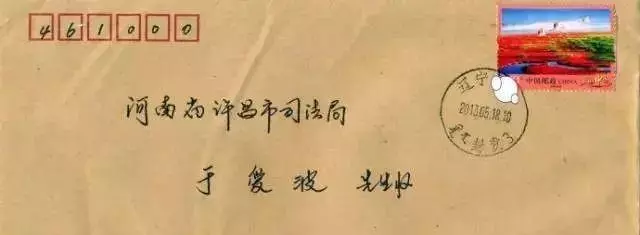 461000
中国邮政 CHINA
辽宁
2013.05.18.10
河南省许昌市司法局
于爱波 先生收